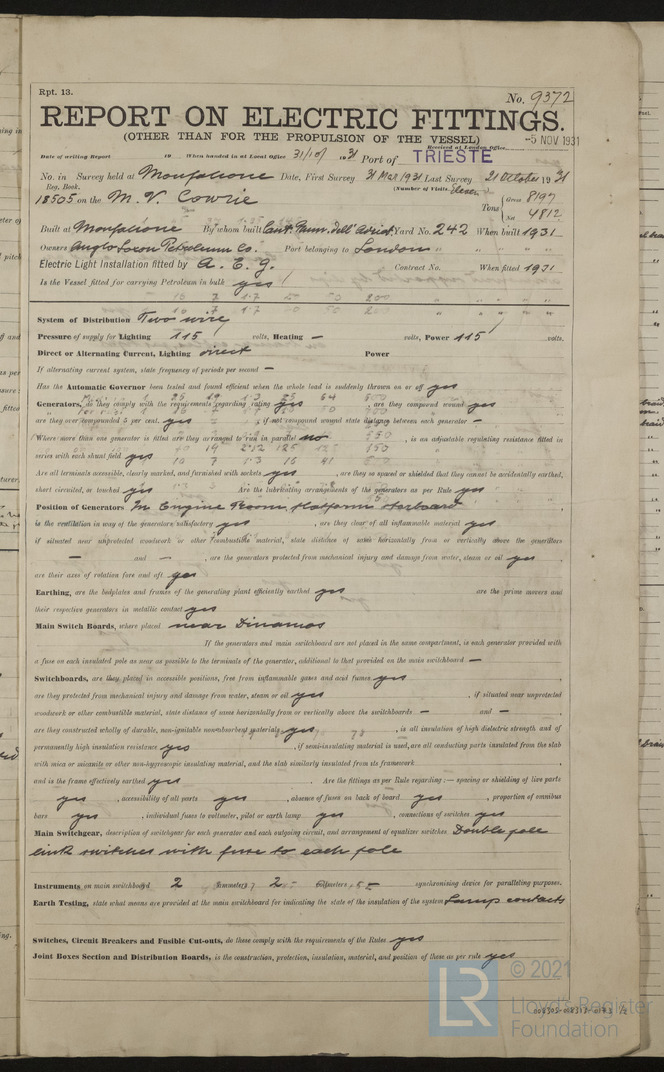 Rpt. 13.
No. 9372
REPORT ON ELECTRIC FITTINGS.
(OTHER THAN FOR THE PROPULSION OF THE VESSEL)
-5 NOV 1931
Date of writing Report 19 When handed in at Local Office 31/10/ 1931 Port of TRIESTE Received at London Office
No. in Survey held at Monfalcone Date, First Survey 31 Mar 1931 Last Survey 21 October 1931
Reg. Book. (Number of Visits Eleven)
18505 on the M. V. Cowrie Tons Gross 8197 Net 4812
Built at Monfalcone By whom built Cant. Nav. dell' Adriat. Yard No. 242 When built 1931
Owners Anglo Saxon Petroleum Co. Port belonging to London
Electric Light Installation fitted by A. E. G. Contract No. When fitted 1931
Is the Vessel fitted for carrying Petroleum in bulk yes
System of Distribution Two wire
Pressure of supply for Lighting 115 volts, Heating — volts, Power 115 volts.
Direct or Alternating Current, Lighting direct Power
If alternating current system, state frequency of periods per second —
Has the Automatic Governor been tested and found efficient when the whole load is suddenly thrown on or off yes
Generators, do they comply with the requirements regarding rating yes , are they compound wound yes
are they over compounded 5 per cent. yes , if not compound wound state distance between each generator —
Where more than one generator is fitted are they arranged to run in parallel no , is an adjustable regulating resistance fitted in
series with each shunt field yes
Are all terminals accessible, clearly marked, and furnished with sockets yes , are they so spaced or shielded that they cannot be accidentally earthed,
short circuited, or touched yes Are the lubricating arrangements of the generators as per Rule yes
Position of Generators In Engine Room platform starboard ,
is the ventilation in way of the generators satisfactory yes , are they clear of all inflammable material yes
if situated near unprotected woodwork or other combustible material, state distance of same horizontally from or vertically above the generators
— and — , are the generators protected from mechanical injury and damage from water, steam or oil yes ,
are their axes of rotation fore and aft yes
Earthing, are the bedplates and frames of the generating plant efficiently earthed yes are the prime movers and
their respective generators in metallic contact yes
Main Switch Boards, where placed near Dinamos
If the generators and main switchboard are not placed in the same compartment, is each generator provided with
a fuse on each insulated pole as near as possible to the terminals of the generator, additional to that provided on the main switchboard —
Switchboards, are they placed in accessible positions, free from inflammable gases and acid fumes yes ,
are they protected from mechanical injury and damage from water, steam or oil yes , if situated near unprotected
woodwork or other combustible material, state distance of same horizontally from or vertically above the switchboards — and — ,
are they constructed wholly of durable, non-ignitable nonabsorbent materials yes , is all insulation of high dielectric strength and of
permanently high insulation resistance yes , if semi-insulating material is used, are all conducting parts insulated from the slab
with mica or micanite or other non-hygroscopic insulating material, and the slab similarly insulated from its framework ,
and is the frame effectively earthed yes . Are the fittings as per Rule regarding:— spacing or shielding of live parts
yes , accessibility of all parts yes , absence of fuses on back of board yes , proportion of omnibus
bars yes , individual fuses to voltmeter, pilot or earth lamp yes , connections of switches yes
Main Switchgear, description of switchgear for each generator and each outgoing circuit, and arrangement of equalizer switches Double pole
link switches with fuse to each pole
Instruments on main switchboard 2 ammeters 2 voltmeters — synchronising device for paralleling purposes.
Earth Testing, state what means are provided at the main switchboard for indicating the state of the insulation of the system Lamp contacts
Switches, Circuit Breakers and Fusible Cut-outs, do these comply with the requirements of the Rules yes
Joint Boxes Section and Distribution Boards, is the construction, protection, insulation, material, and position of these as per rule yes
LR
© 2021
Lloyd's Register
Foundation